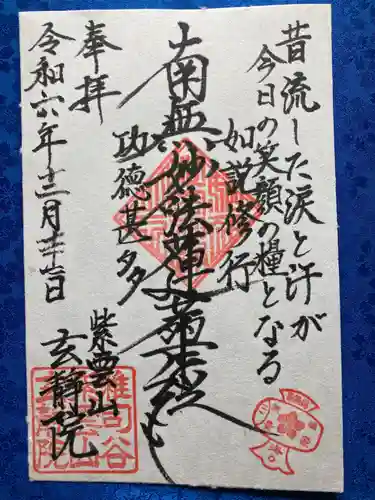 昔流した涙と汗が
今日の笑顔の糧となる
如説修行
南無妙法蓮華経
功徳甚多
奉拝
令和六年十二月廿六日
紫雲山
玄静院